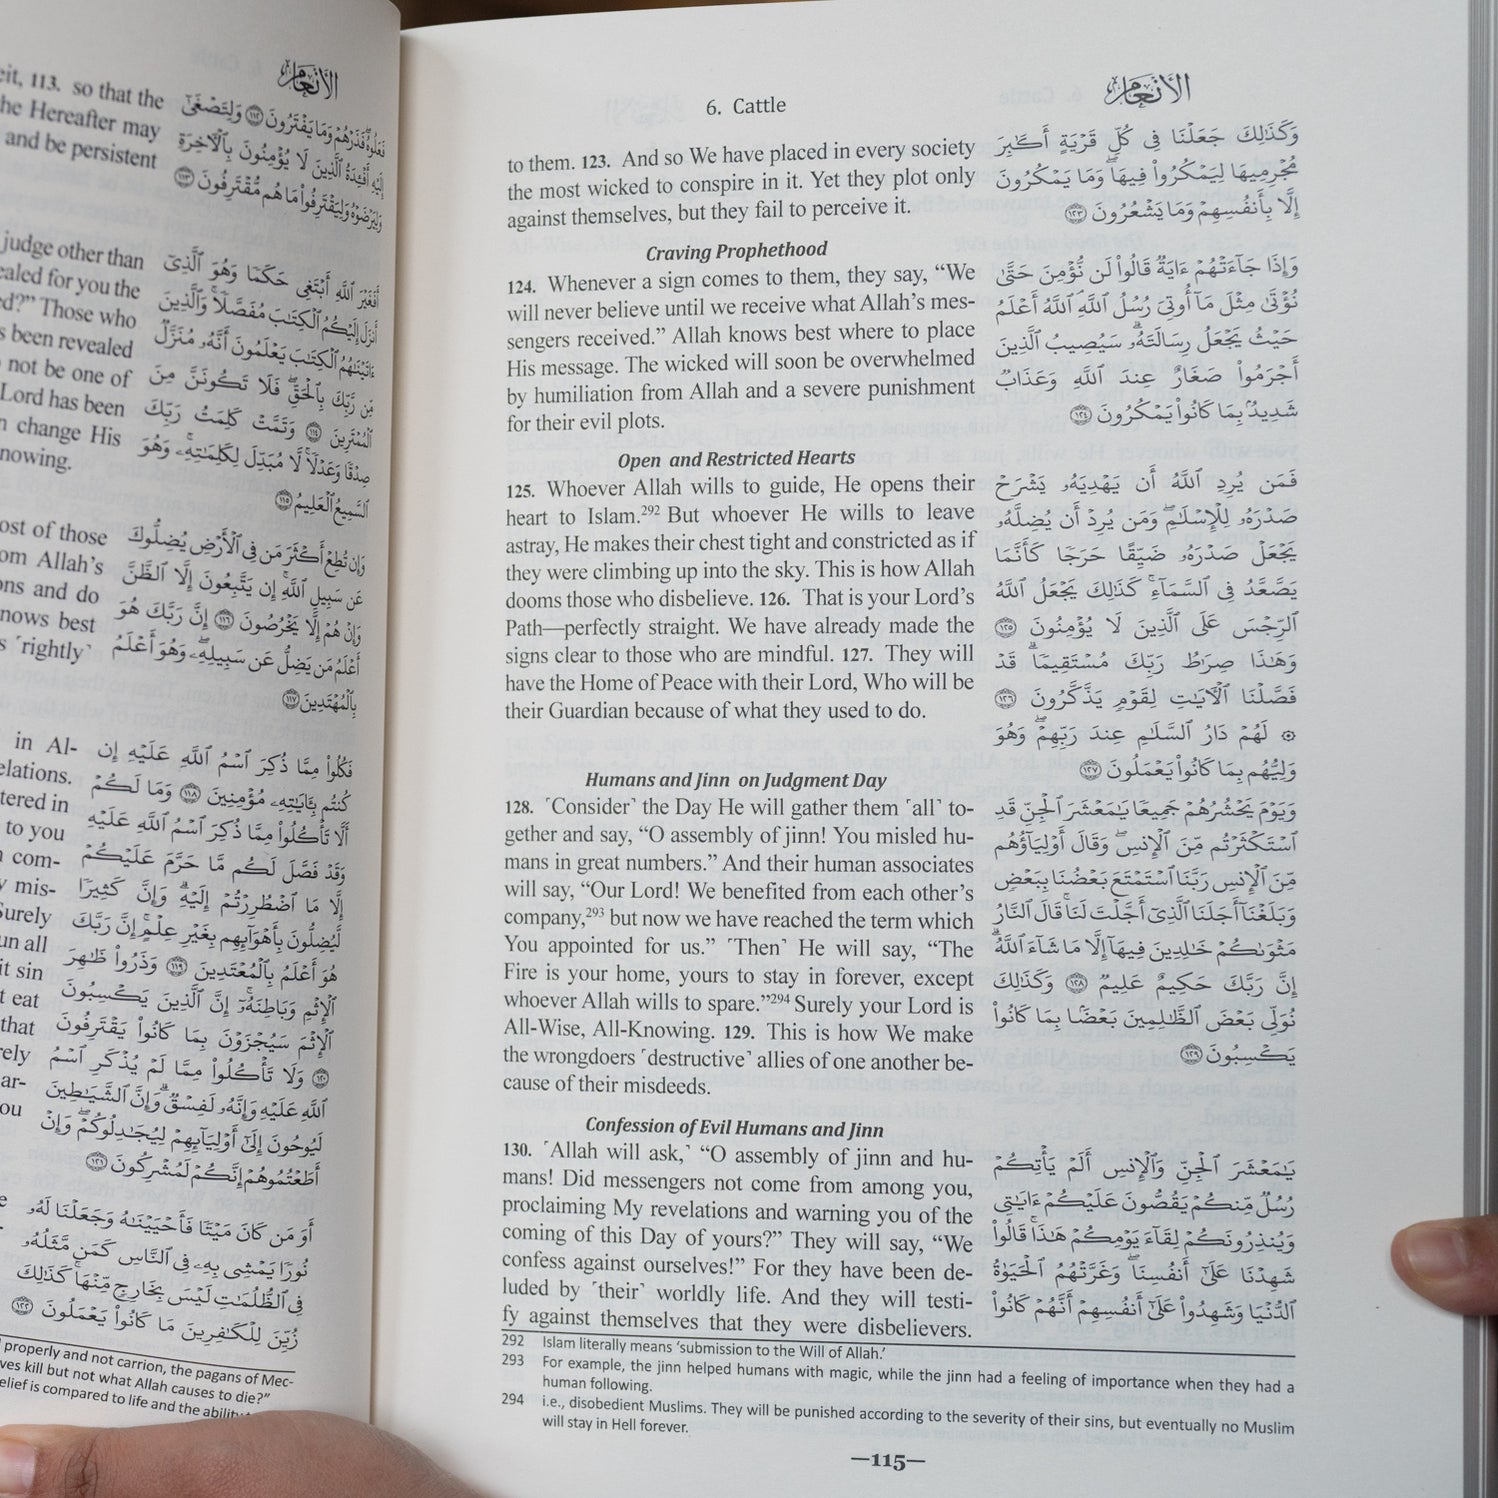 eit, 113. so that the
he Hereafter may
and be persistent
judge other than
ealed for you the
ed?” Those who
s been revealed
not be one of
Lord has been
n change His
nowing.
ost of those
om Allah’s
ons and do
nows best
s ˹rightly˺
in Al-
elations.
tered in
to you
com-
mis-
Surely
un all
it sin
t eat
that
rely
ar-
ou
الأنعام
فَعَلُوهُ فَذَرْهُمْ وَمَا يَفْتَرُونَ ١١٢ وَلِتَصْغَىٰٓ
إِلَيْهِ أَفْـِٔدَةُ ٱلَّذِينَ لَا يُؤْمِنُونَ بِٱلْـَٔاخِرَةِ
وَلِيَرْضَوْهُ وَلِيَقْتَرِفُوا۟ مَا هُم مُّقْتَرِفُونَ ١١٣
أَفَغَيْرَ ٱللَّهِ أَبْتَغِى حَكَمًا وَهُوَ ٱلَّذِىٓ
أَنزَلَ إِلَيْكُمُ ٱلْكِتَـٰبَ مُفَصَّلًا ۚ وَٱلَّذِينَ
ءَاتَيْنَـٰهُمُ ٱلْكِتَـٰبَ يَعْلَمُونَ أَنَّهُۥ مُنَزَّلٌ
مِّن رَّبِّكَ بِٱلْحَقِّ ۖ فَلَا تَكُونَنَّ مِنَ
ٱلْمُمْتَرِينَ ١١٤ وَتَمَّتْ كَلِمَتُ رَبِّكَ
صِدْقًا وَعَدْلًا ۚ لَّا مُبَدِّلَ لِكَلِمَـٰتِهِۦ ۚ وَهُوَ
ٱلسَّمِيعُ ٱلْعَلِيمُ ١١٥
وَإِن تُطِعْ أَكْثَرَ مَن فِى ٱلْأَرْضِ يُضِلُّوكَ
عَن سَبِيلِ ٱللَّهِ ۚ إِن يَتَّبِعُونَ إِلَّا ٱلظَّنَّ
وَإِنْ هُمْ إِلَّا يَخْرُصُونَ ١١٦ إِنَّ رَبَّكَ هُوَ
أَعْلَمُ مَن يَضِلُّ عَن سَبِيلِهِۦ ۖ وَهُوَ أَعْلَمُ
بِٱلْمُهْتَدِينَ ١١٧
فَكُلُوا۟ مِمَّا ذُكِرَ ٱسْمُ ٱللَّهِ عَلَيْهِ إِن
كُنتُم بِـَٔايَـٰتِهِۦ مُؤْمِنِينَ ١١٨ وَمَا لَكُمْ
أَلَّا تَأْكُلُوا۟ مِمَّا ذُكِرَ ٱسْمُ ٱللَّهِ عَلَيْهِ
وَقَدْ فَصَّلَ لَكُم مَّا حَرَّمَ عَلَيْكُمْ
إِلَّا مَا ٱضْطُرِرْتُمْ إِلَيْهِ ۗ وَإِنَّ كَثِيرًا
لَّيُضِلُّونَ بِأَهْوَآئِهِم بِغَيْرِ عِلْمٍ ۗ إِنَّ رَبَّكَ
هُوَ أَعْلَمُ بِٱلْمُعْتَدِينَ ١١٩ وَذَرُوا۟ ظَـٰهِرَ
ٱلْإِثْمِ وَبَاطِنَهُۥٓ ۚ إِنَّ ٱلَّذِينَ يَكْسِبُونَ
ٱلْإِثْمَ سَيُجْزَوْنَ بِمَا كَانُوا۟ يَقْتَرِفُونَ
١٢٠ وَلَا تَأْكُلُوا۟ مِمَّا لَمْ يُذْكَرِ ٱسْمُ
ٱللَّهِ عَلَيْهِ وَإِنَّهُۥ لَفِسْقٌ ۗ وَإِنَّ ٱلشَّيَـٰطِينَ
لَيُوحُونَ إِلَىٰٓ أَوْلِيَآئِهِمْ لِيُجَـٰدِلُوكُمْ ۖ وَإِنْ
أَطَعْتُمُوهُمْ إِنَّكُمْ لَمُشْرِكُونَ ١٢١
أَوَمَن كَانَ مَيْتًا فَأَحْيَيْنَـٰهُ وَجَعَلْنَا لَهُۥ
نُورًا يَمْشِى بِهِۦ فِى ٱلنَّاسِ كَمَن مَّثَلُهُۥ
فِى ٱلظُّلُمَـٰتِ لَيْسَ بِخَارِجٍ مِّنْهَا ۚ كَذَٰلِكَ
زُيِّنَ لِلْكَـٰفِرِينَ مَا كَانُوا۟ يَعْمَلُونَ ١٢٢
properly and not carrion, the pagans of Mec-
ves kill but not what Allah causes to die?”
elief is compared to life and the ability
6. Cattle
الأنعام
to them. 123. And so We have placed in every society
the most wicked to conspire in it. Yet they plot only
against themselves, but they fail to perceive it.
Craving Prophethood
124. Whenever a sign comes to them, they say, “We
will never believe until we receive what Allah’s mes-
sengers received.” Allah knows best where to place
His message. The wicked will soon be overwhelmed
by humiliation from Allah and a severe punishment
for their evil plots.
Open and Restricted Hearts
125. Whoever Allah wills to guide, He opens their
heart to Islam.292 But whoever He wills to leave
astray, He makes their chest tight and constricted as if
they were climbing up into the sky. This is how Allah
dooms those who disbelieve. 126. That is your Lord’s
Path—perfectly straight. We have already made the
signs clear to those who are mindful. 127. They will
have the Home of Peace with their Lord, Who will be
their Guardian because of what they used to do.
Humans and Jinn on Judgment Day
128. ˹Consider˺ the Day He will gather them ˹all˺ to-
gether and say, “O assembly of jinn! You misled hu-
mans in great numbers.” And their human associates
will say, “Our Lord! We benefited from each other’s
company,293 but now we have reached the term which
You appointed for us.” ˹Then˺ He will say, “The
Fire is your home, yours to stay in forever, except
whoever Allah wills to spare.”294 Surely your Lord is
All-Wise, All-Knowing. 129. This is how We make
the wrongdoers ˹destructive˺ allies of one another be-
cause of their misdeeds.
Confession of Evil Humans and Jinn
130. ˹Allah will ask,˺ “O assembly of jinn and hu-
mans! Did messengers not come from among you,
proclaiming My revelations and warning you of the
coming of this Day of yours?” They will say, “We
confess against ourselves!” For they have been de-
luded by ˹their˺ worldly life. And they will testi-
fy against themselves that they were disbelievers.
وَكَذَٰلِكَ جَعَلْنَا فِى كُلِّ قَرْيَةٍ أَكَـٰبِرَ
مُجْرِمِيهَا لِيَمْكُرُوا۟ فِيهَا ۖ وَمَا يَمْكُرُونَ
إِلَّا بِأَنفُسِهِمْ وَمَا يَشْعُرُونَ ١٢٣
وَإِذَا جَآءَتْهُمْ ءَايَةٌ قَالُوا۟ لَن نُّؤْمِنَ حَتَّىٰ
نُؤْتَىٰ مِثْلَ مَآ أُوتِىَ رُسُلُ ٱللَّهِ ۘ ٱللَّهُ أَعْلَمُ
حَيْثُ يَجْعَلُ رِسَالَتَهُۥ ۗ سَيُصِيبُ ٱلَّذِينَ
أَجْرَمُوا۟ صَغَارٌ عِندَ ٱللَّهِ وَعَذَابٌ
شَدِيدٌۢ بِمَا كَانُوا۟ يَمْكُرُونَ ١٢٤
فَمَن يُرِدِ ٱللَّهُ أَن يَهْدِيَهُۥ يَشْرَحْ
صَدْرَهُۥ لِلْإِسْلَـٰمِ ۖ وَمَن يُرِدْ أَن يُضِلَّهُۥ
يَجْعَلْ صَدْرَهُۥ ضَيِّقًا حَرَجًا كَأَنَّمَا
يَصَّعَّدُ فِى ٱلسَّمَآءِ ۚ كَذَٰلِكَ يَجْعَلُ ٱللَّهُ
ٱلرِّجْسَ عَلَى ٱلَّذِينَ لَا يُؤْمِنُونَ ١٢٥
وَهَـٰذَا صِرَٰطُ رَبِّكَ مُسْتَقِيمًا ۗ قَدْ
فَصَّلْنَا ٱلْـَٔايَـٰتِ لِقَوْمٍ يَذَّكَّرُونَ ١٢٦
۞ لَهُمْ دَارُ ٱلسَّلَـٰمِ عِندَ رَبِّهِمْ ۖ وَهُوَ
وَلِيُّهُم بِمَا كَانُوا۟ يَعْمَلُونَ ١٢٧
وَيَوْمَ يَحْشُرُهُمْ جَمِيعًا يَـٰمَعْشَرَ ٱلْجِنِّ قَدِ
ٱسْتَكْثَرْتُم مِّنَ ٱلْإِنسِ ۖ وَقَالَ أَوْلِيَآؤُهُم
مِّنَ ٱلْإِنسِ رَبَّنَا ٱسْتَمْتَعَ بَعْضُنَا بِبَعْضٍ
وَبَلَغْنَآ أَجَلَنَا ٱلَّذِىٓ أَجَّلْتَ لَنَا ۚ قَالَ ٱلنَّارُ
مَثْوَىٰكُمْ خَـٰلِدِينَ فِيهَآ إِلَّا مَا شَآءَ ٱللَّهُ ۗ
إِنَّ رَبَّكَ حَكِيمٌ عَلِيمٌ ١٢٨ وَكَذَٰلِكَ
نُوَلِّى بَعْضَ ٱلظَّـٰلِمِينَ بَعْضًۢا بِمَا كَانُوا۟
يَكْسِبُونَ ١٢٩
يَـٰمَعْشَرَ ٱلْجِنِّ وَٱلْإِنسِ أَلَمْ يَأْتِكُمْ
رُسُلٌ مِّنكُمْ يَقُصُّونَ عَلَيْكُمْ ءَايَـٰتِى
وَيُنذِرُونَكُمْ لِقَآءَ يَوْمِكُمْ هَـٰذَا ۚ قَالُوا۟
شَهِدْنَا عَلَىٰٓ أَنفُسِنَا ۖ وَغَرَّتْهُمُ ٱلْحَيَوٰةُ
ٱلدُّنْيَا وَشَهِدُوا۟ عَلَىٰٓ أَنفُسِهِمْ أَنَّهُمْ كَانُوا۟
292 Islam literally means ‘submission to the Will of Allah.’
293 For example, the jinn helped humans with magic, while the jinn had a feeling of importance when they had a
human following.
294 i.e., disobedient Muslims. They will be punished according to the severity of their sins, but eventually no Muslim
will stay in Hell forever.
—115—